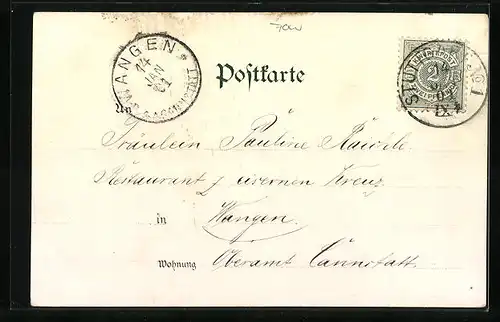 WANGEN
14
JAN
01
Postkarte
STUTTGART No 1
14
IX
2
An
Fräulein Pauline
Restaurant z. eisernen Kreuz
in Wangen.
Wohnung Oberamt Cannstatt.